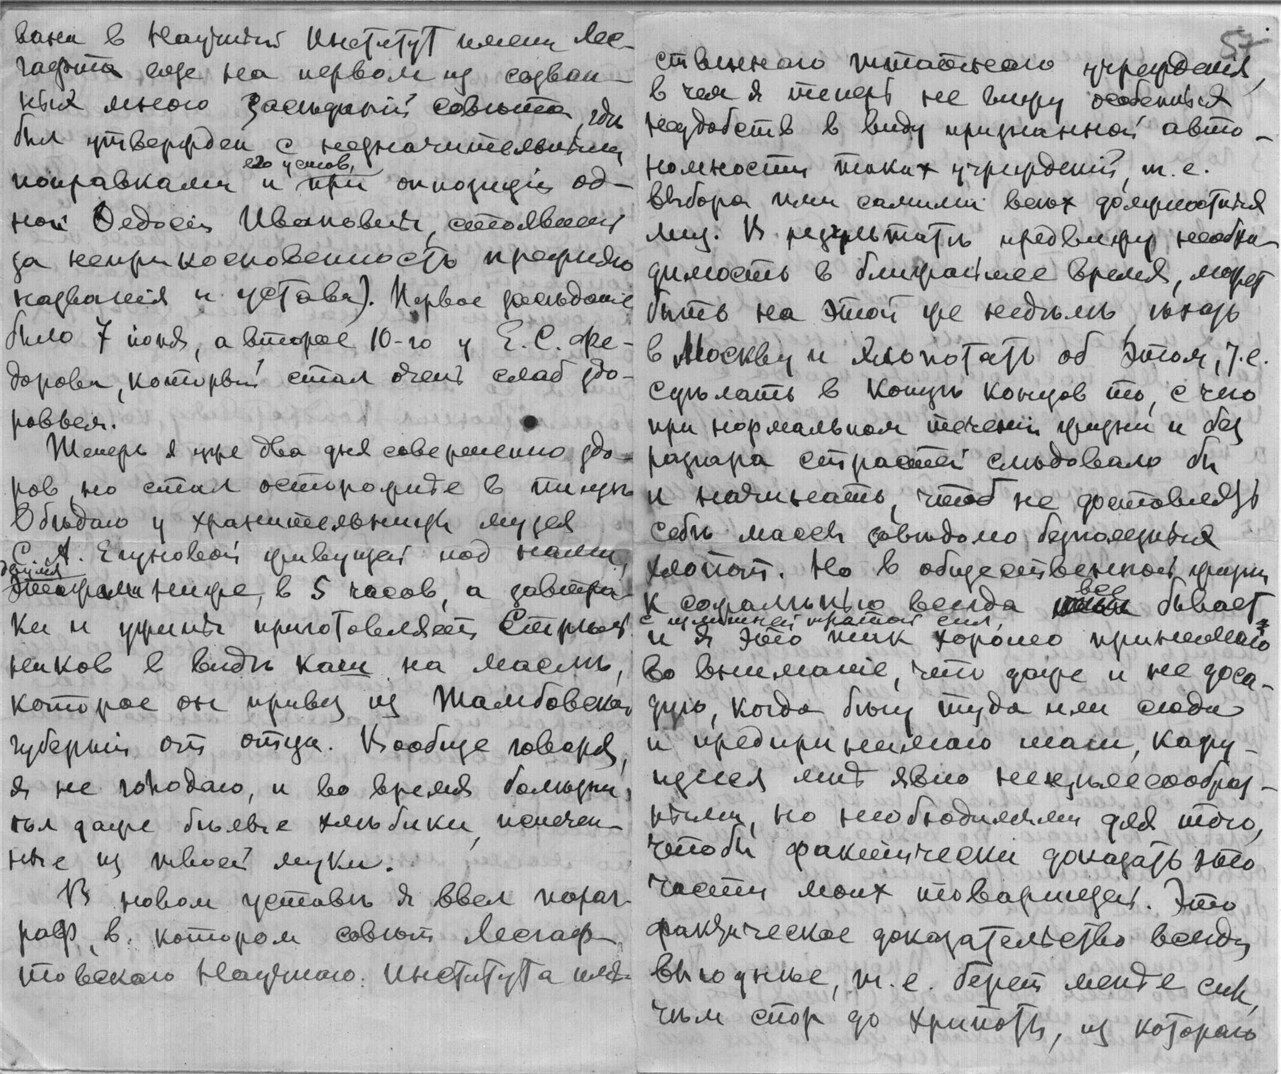 вана в Научный Институт имени Лес-
гафта еще на первом из созван-
ных мною заседаний совета, где
был утвержден с незначительными
поправками и его устав, при оппозиции од-
ной Федосеи Ивановны, стоявшей
за неприкосновенность прежняго
названія и устава). Первое заседаніе
было 7 іюня, а второе 10-го у Е. С. Фе-
дорова, который стал очень слаб здо-
ровьем.
Теперь я уже два дня совершенно здо-
ров, но стал осторожнее в пищѣ
Обѣдаю у хранительницы музея
С. А. Егуновой живущей под нами,
этажем ниже, в 5 часов, а завтра-
ки и ужины приготовляет Стрель
ников в видѣ каш на маслѣ,
которое он привез из Тамбовской
губерніи от отца. Вообще говоря,
я не голодаю, и во время болѣзни
ѣл даже бѣлые хлѣбики, испечен-
ные из твоей муки.
В новом уставѣ я ввел параг-
раф, в котором совѣт Лесгаф-
товскаго Научнаго Института
57
ственнаго штатнаго учрежденія,
в чем я теперь не вижу особенных
неудобств в виду признанной авто-
номности таких учреждений, т. е.
выбора ими самими всѣх должностных
лиц. В результатѣ предвижу необхо-
димость в ближайшее время, может
быть на этой же недѣлѣ, ѣхать
в Москву и хлопотать об этом, т. е.
сдѣлать в концѣ концов то, с чего
при нормальном теченіи жизни и без
разгара страстей слѣдовало бы
и начинать, чтоб не доставлять
себѣ массы завѣдомо безполезных
хлопот. Но в общественной жизни
к сожалѣнію всегда все бывает
с излишней тратой сил,
и я это так хорошо принимаю
во вниманіе, что даже и не доса-
дую, когда бѣгу туда или сюда
и предпринимаю шаги, кажу-
щиеся мнѣ явно нецѣлесообраз-
ными, но необходимыми для того,
чтобы фактически доказать это
части моих товарищей. Это
фактическое доказательство всегда
выгоднѣе, т. е. берет менѣе сил,
чѣм спор до хрипоты, из котораго